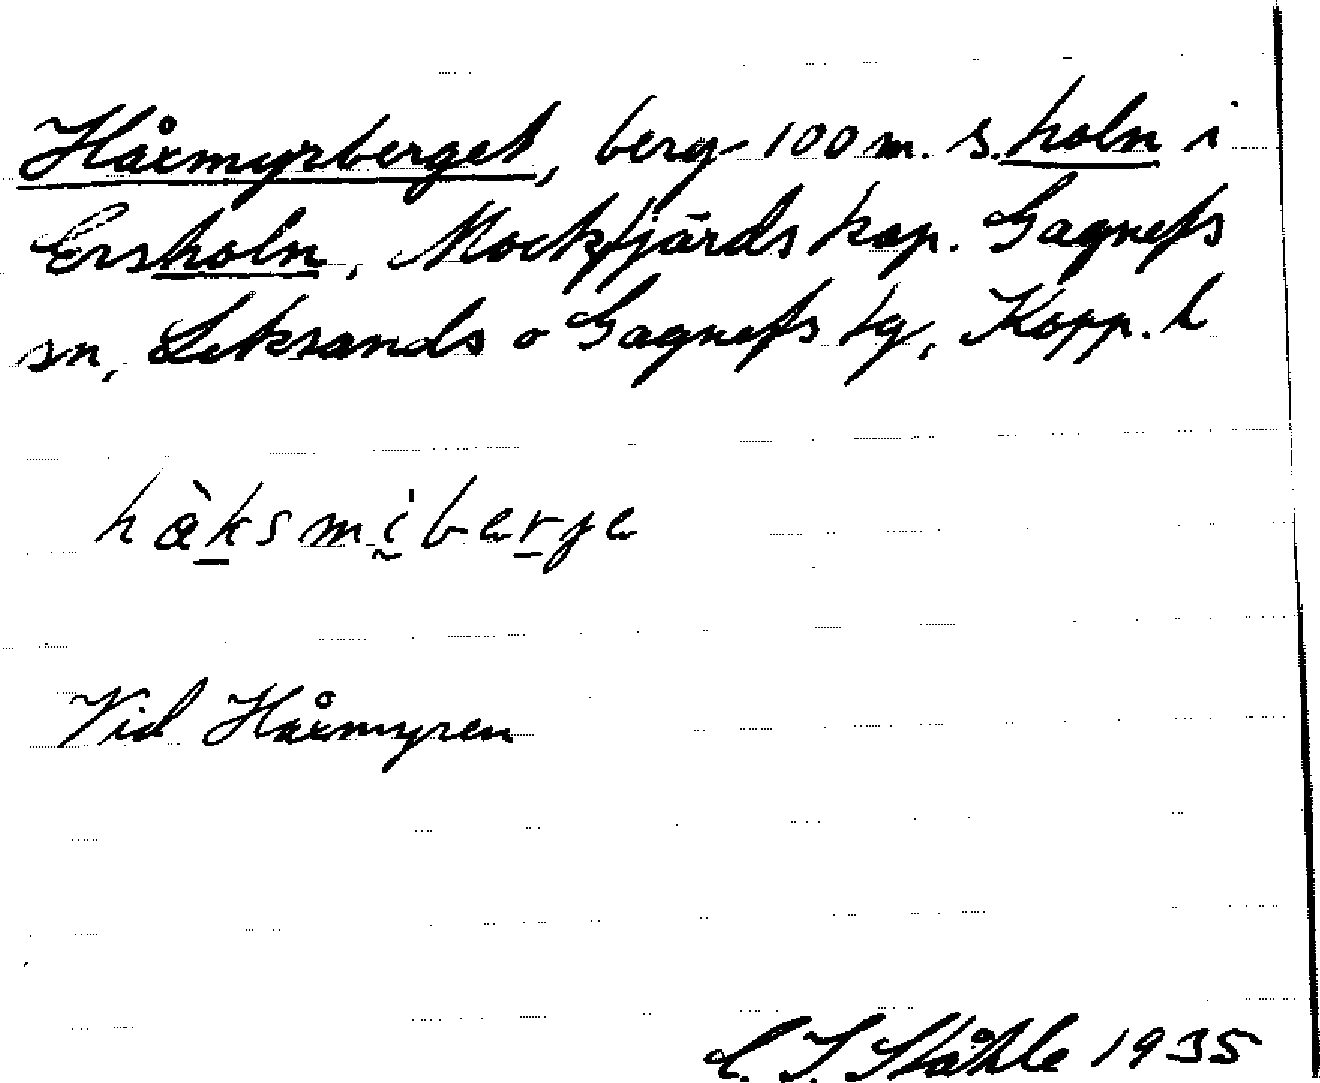 Håxmyrberget, berg 100 m. s. holn i
Ersholn, Mockfjärds kap. Gagnefs
sn, Leksands o Gagnefs tg, Kopp. l
hàksmḭ̍berge
Vid Håxmyren
C. I. Ståhle 1935